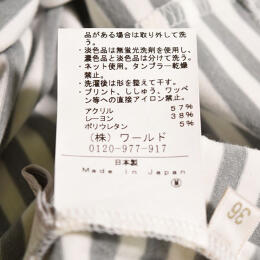 品がある場合は取り外して洗
う。
・淡色品は無蛍光洗剤を使用し、
濃色品と淡色品は分けて洗う。
・ネット使用。タンブラー乾燥
禁止。
・洗濯後は形を整えて干す。
・プリント、ししゅう、ワッペ
ン等への直接アイロン禁止。
アクリル 57%
レーヨン 38%
ポリウレタン 5%
(株) ワールド
0120-977-917
日本製
Made in Japan
36